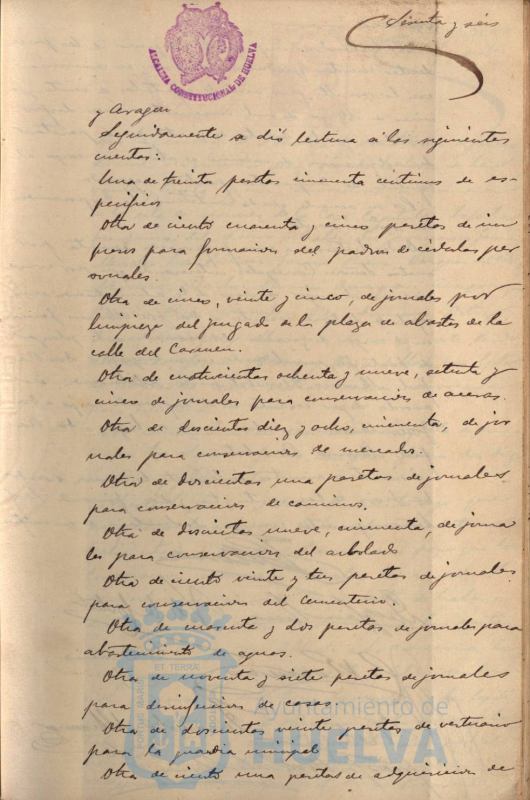 Sesenta y seis
ALCALDIA CONSTITUCIONAL DE HUELVA
y Aragon
Seguidamente se dió lectura á las siguientes
cuentas:
Una de treinta pesetas cincuenta centimos de es-
pecificos
Otra de ciento cuarenta y cinco pesetas de im
presos para formacion del padron de cédulas per
sonales.
Otra de cinco, veinte y cinco, de jornales por
limpieza del juzgado de la plaza de abastos de la
calle del Carmen.
Otra de cuatrocientas ochenta y nueve, setenta y
cinco de jornales para conservacion de aceras.
Otra de doscientas diez y ocho, cincuenta, de jor
nales para conservacion de mercados.
Otra de doscientas una pesetas de jornales
para conservacion de caminos.
Otra de doscientas nueve, cincuenta, de jorna
les para conservacion del arbolado
Otra de ciento veinte y tres pesetas de jornales
para conservacion del Cementerio.
Otra de y dos pesetas de jornales para
abastecimiento de aguas.
Otra de noventa y siete pesetas de jornales
para desinfeccion de casas
Otra de doscientas veinte pesetas de vestuario
para la guardia municipal
Otra de ciento una pesetas de adquisicion de
ET TERRAE
Ayuntamiento de
HUELVA